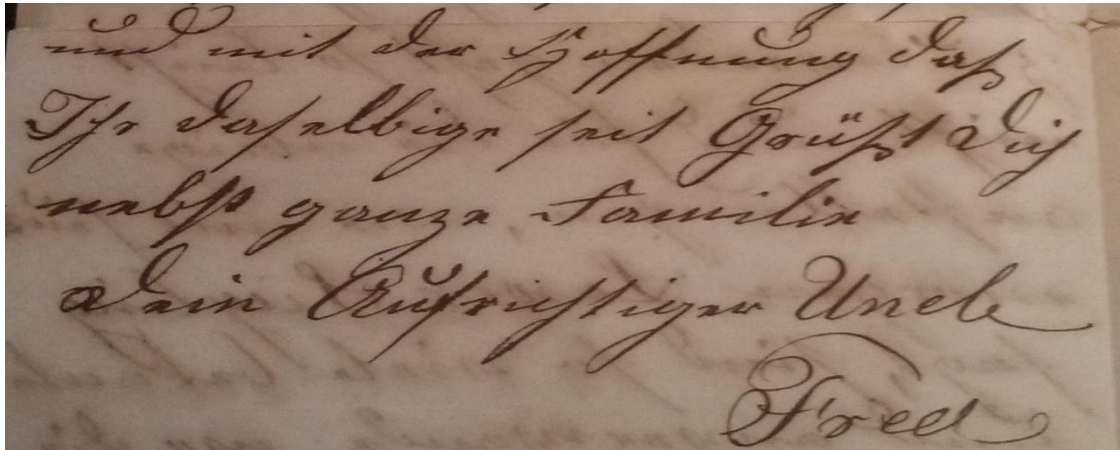 und mit der Hoffnung daß
Ihr daselbige seit Grüßt Dich
nebst ganze Familie
Dein Aufrichtiger Uncle
Fred